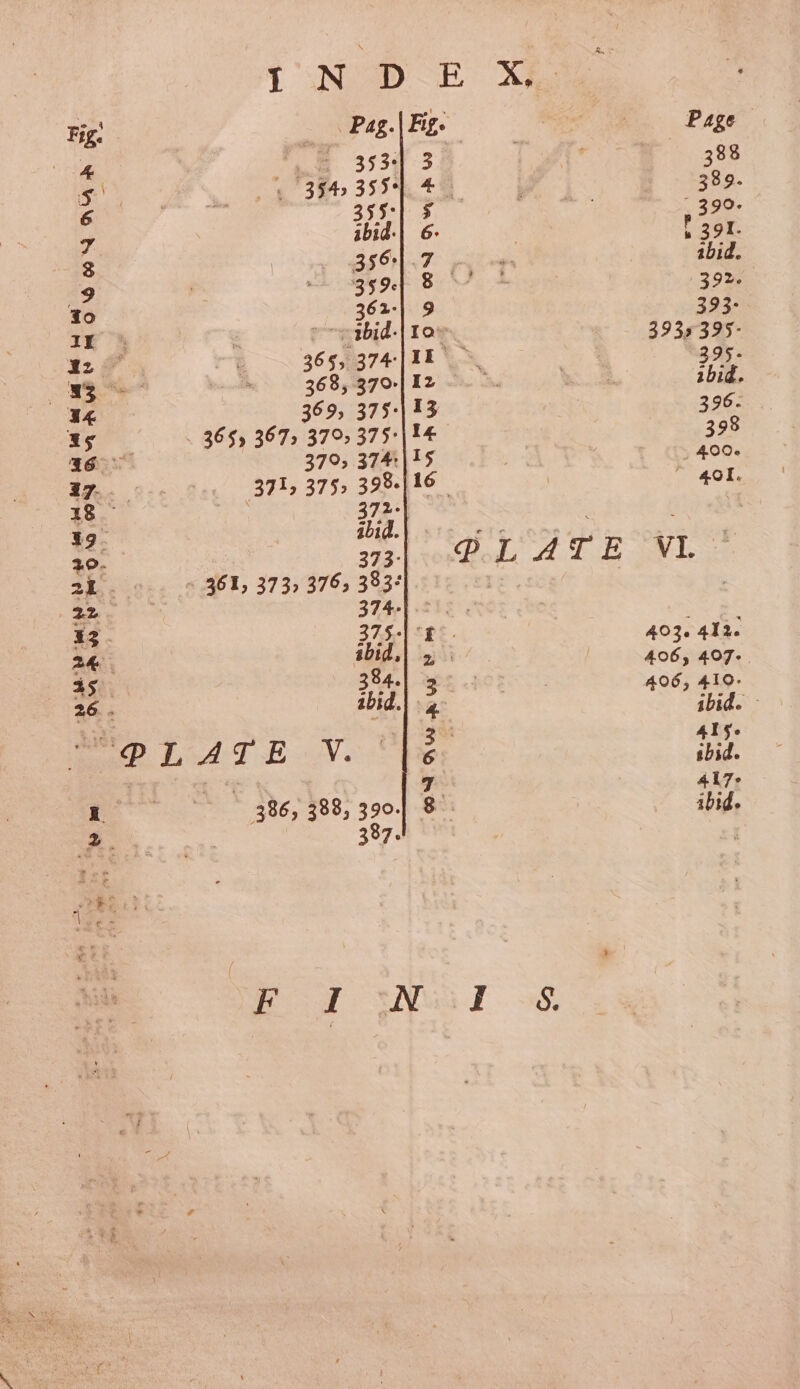 INDEX.
Fig. Pag.
4 353.
5 354, 355.
6 355.
7 ibid.
8 356.
9 359.
10 362.
11 ibid.
12 365, 374.
13 368, 370.
14 369, 375.
15 365, 367, 370, 375.
16 370, 374.
17. 371, 375, 398.
18 372.
19 ibid.
20. 373.
21. 361, 373, 376, 383.
22 374.
23 375.
24 ibid.
25 384.
26. ibid.
PLATE V.
1 386, 388, 390.
2. 387.
Fig. Page
3 388
4 389.
5 390.
6. 391.
7 ibid.
8 392.
9 393.
10 393, 395.
11 395.
12 ibid.
13 396.
14 398
15 400.
16 401.
PLATE VI.
1 403. 412.
2 406, 407.
3 406, 410.
4 ibid.
5 415.
6 ibid.
7 417.
8 ibid.
FINIS.